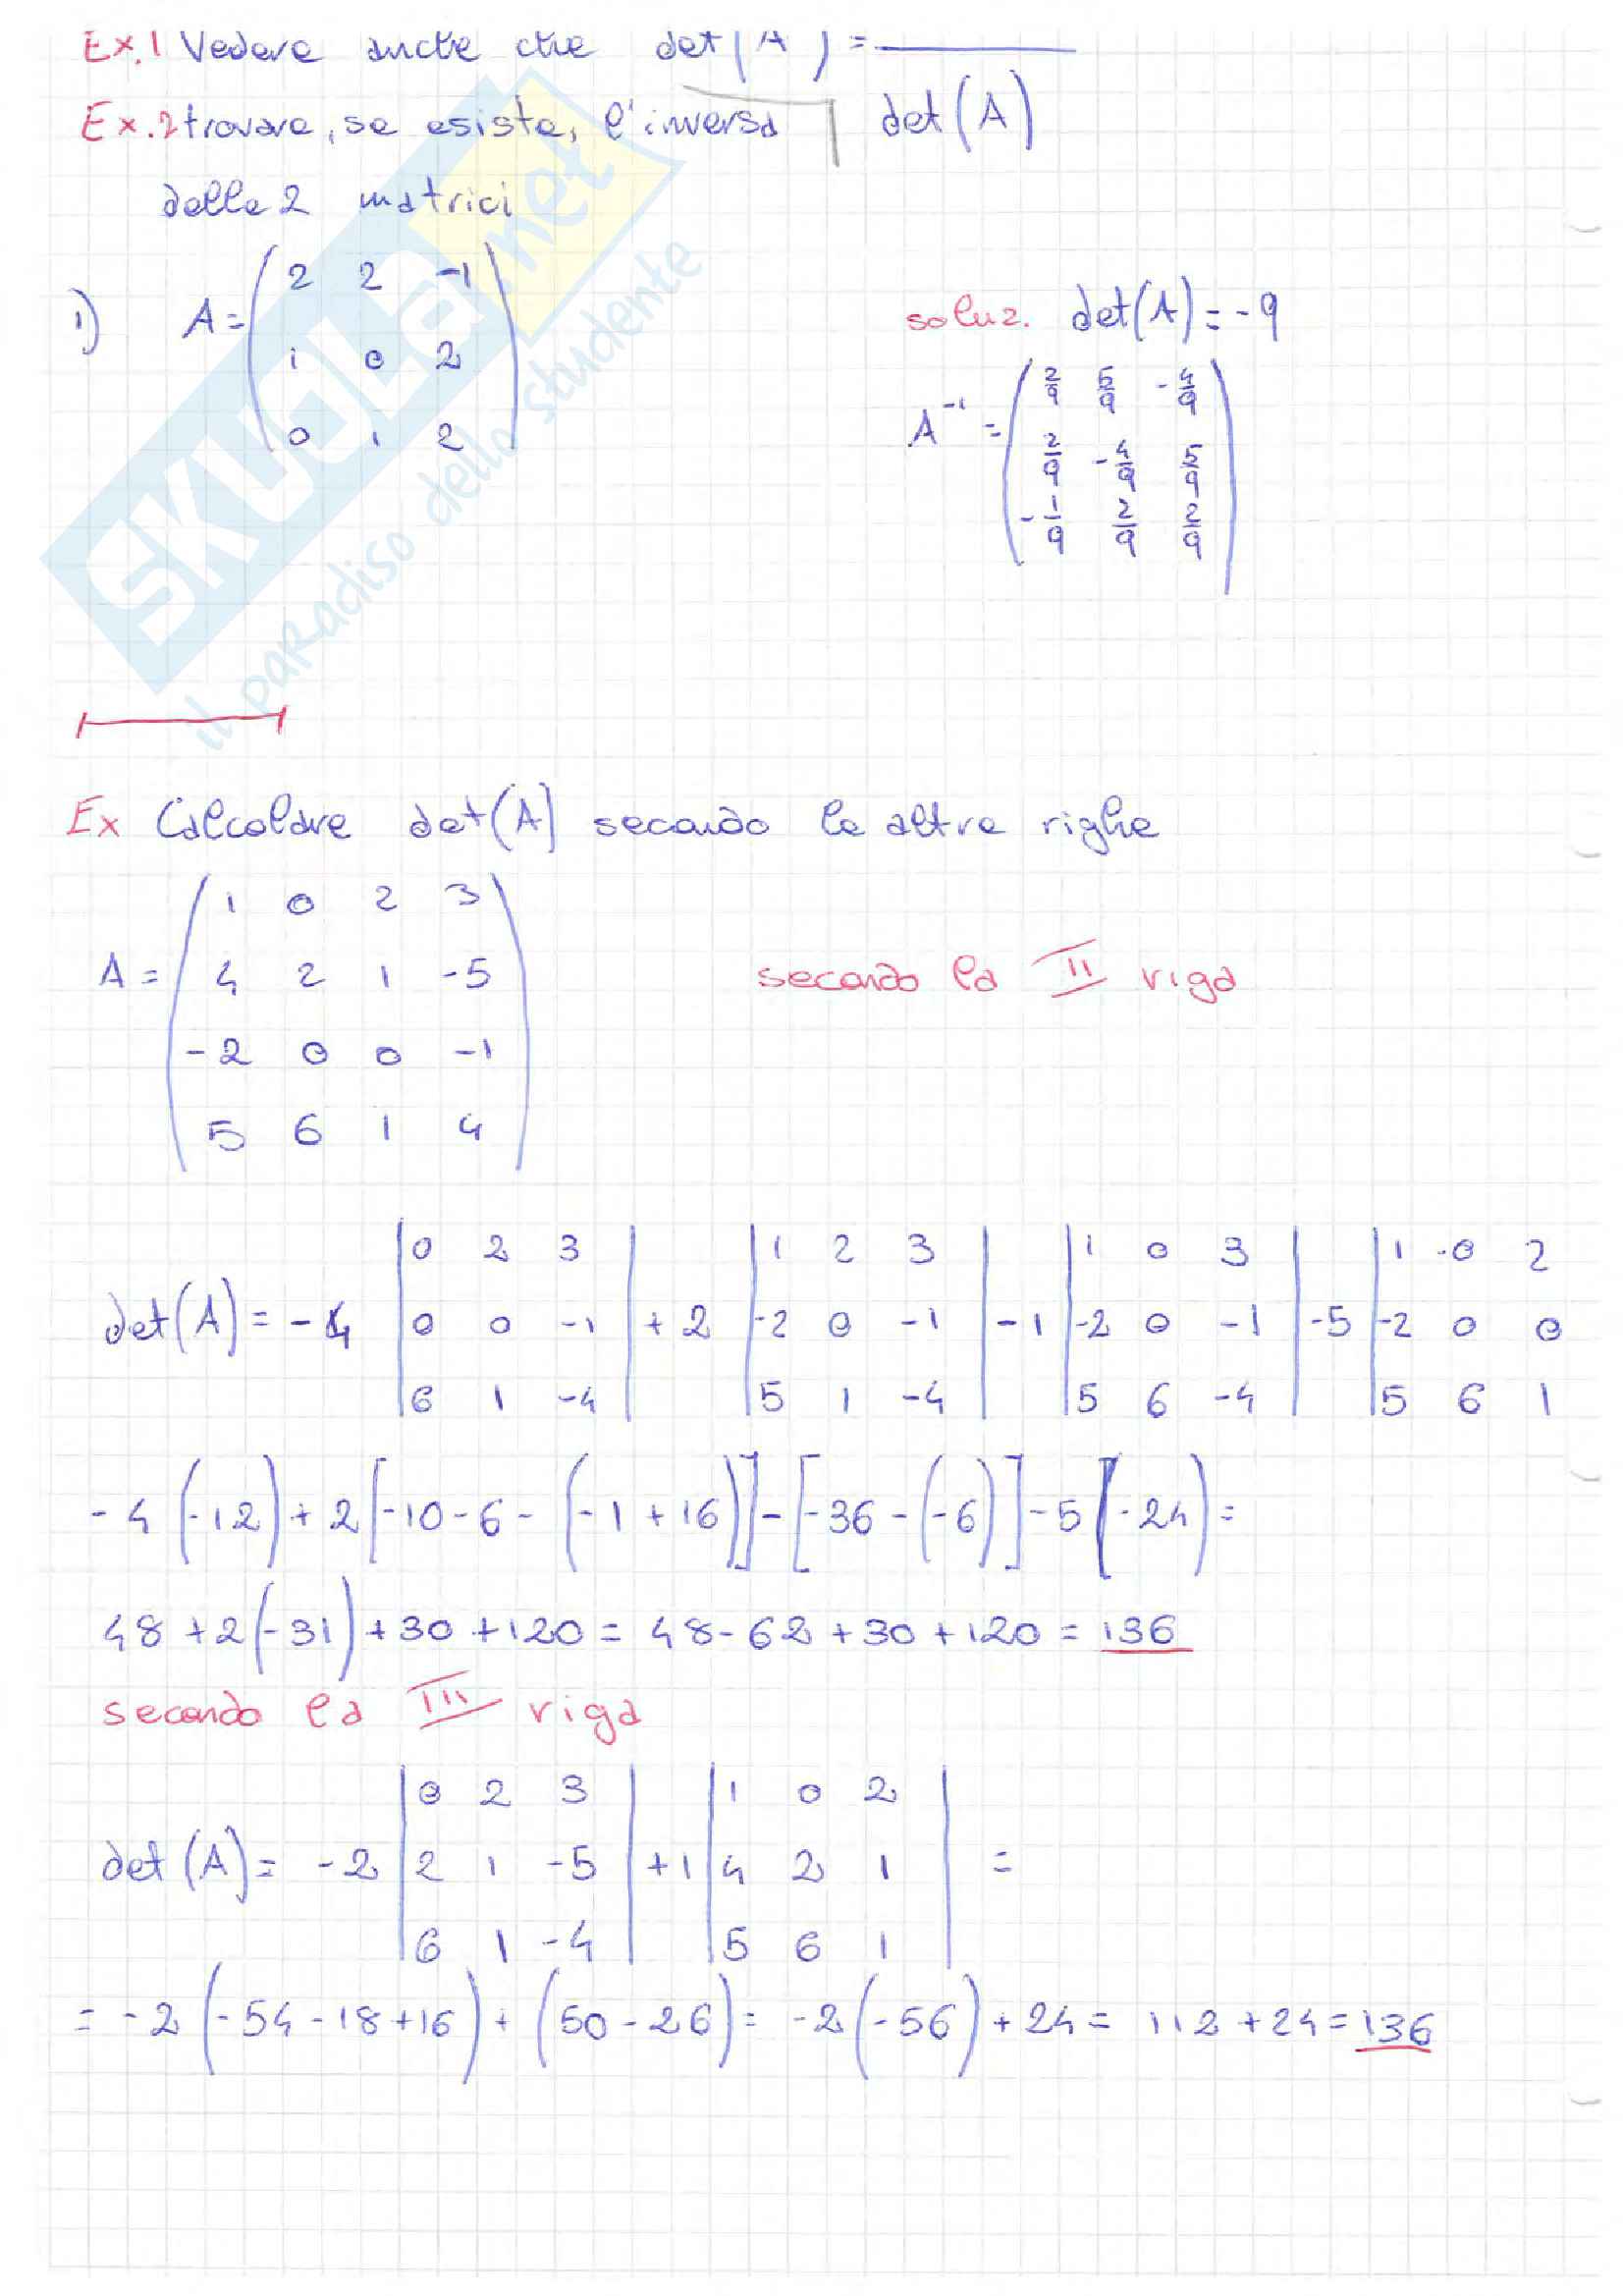 Ex.1 Vedere anche che det(A ) = ———
Ex.2 trovare, se esiste, l'inversa det(A)
delle 2 matrici
1) A = ( 2 2 -1
1 0 2
0 1 2 )
soluz. det(A) = -9
A⁻¹ = ( 2/9 5/9 -4/9
2/9 -4/9 5/9
-1/9 2/9 2/9 )
SKUOLA.net
il paradiso dello studente
Ex Calcolare det(A) secondo le altre righe
A = ( 1 0 2 3
4 2 1 -5
-2 0 0 -1
5 6 1 4 )
secondo la II riga
det(A) = -4 | 0 2 3 | +2 | 1 2 3 | -1 | 1 0 3 | -5 | 1 0 2
0 0 -1 | -2 0 -1 | -2 0 -1 | -2 0 0
6 1 -4 | 5 1 -4 | 5 6 -4 | 5 6 1
-4(-12)+2[-10-6-(-1+16)]-[-36-(-6)]-5(-24)=
48+2(-31)+30+120=48-62+30+120=136
secondo la III riga
det(A) = -2 | 0 2 3 | +1 | 1 0 2 | =
2 1 -5 | 4 2 1
6 1 -4 | 5 6 1
= -2(-54-18+16)+(50-26)= -2(-56)+24= 112+24=136